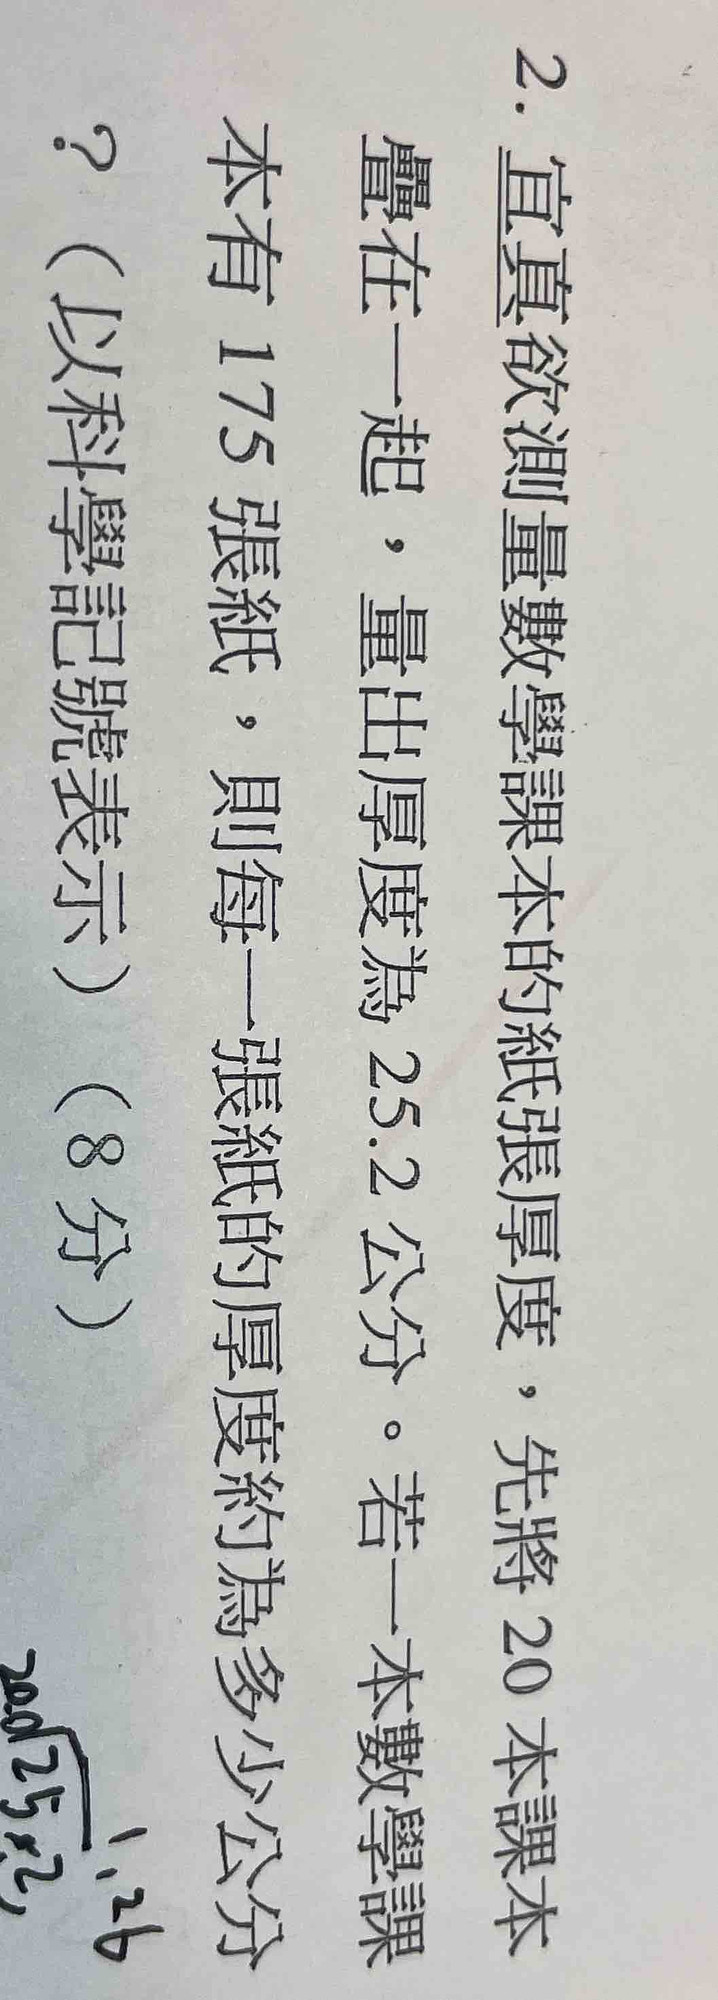 2. 宜真欲測量數學課本的紙張厚度，先將 20 本課本
疊在一起，量出厚度為 25.2 公分。若一本數學課
本有 175 張紙，則每一張紙的厚度約為多少公分
？（以科學記號表示）（8 分）
1.26
25.2